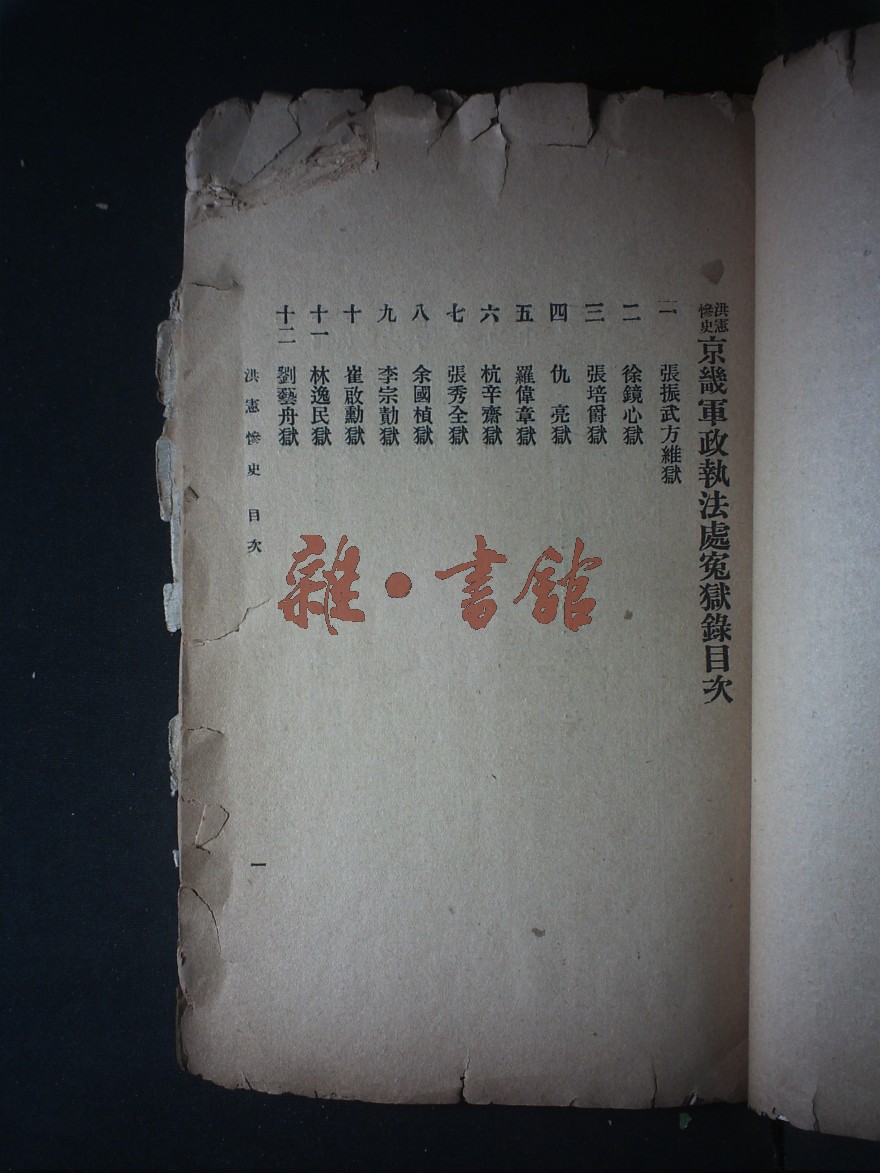 洪憲慘史京畿軍政執法處冤獄錄目次
一 張振武方維獄
二 徐鏡心獄
三 張培爵獄
四 仇亮獄
五 羅偉章獄
六 杭辛齋獄
七 張秀全獄
八 余國楨獄
九 李宗勣獄
十 崔啟勳獄
十一 林逸民獄
十二 劉藝舟獄
洪憲慘史 目次 一
雜·書館